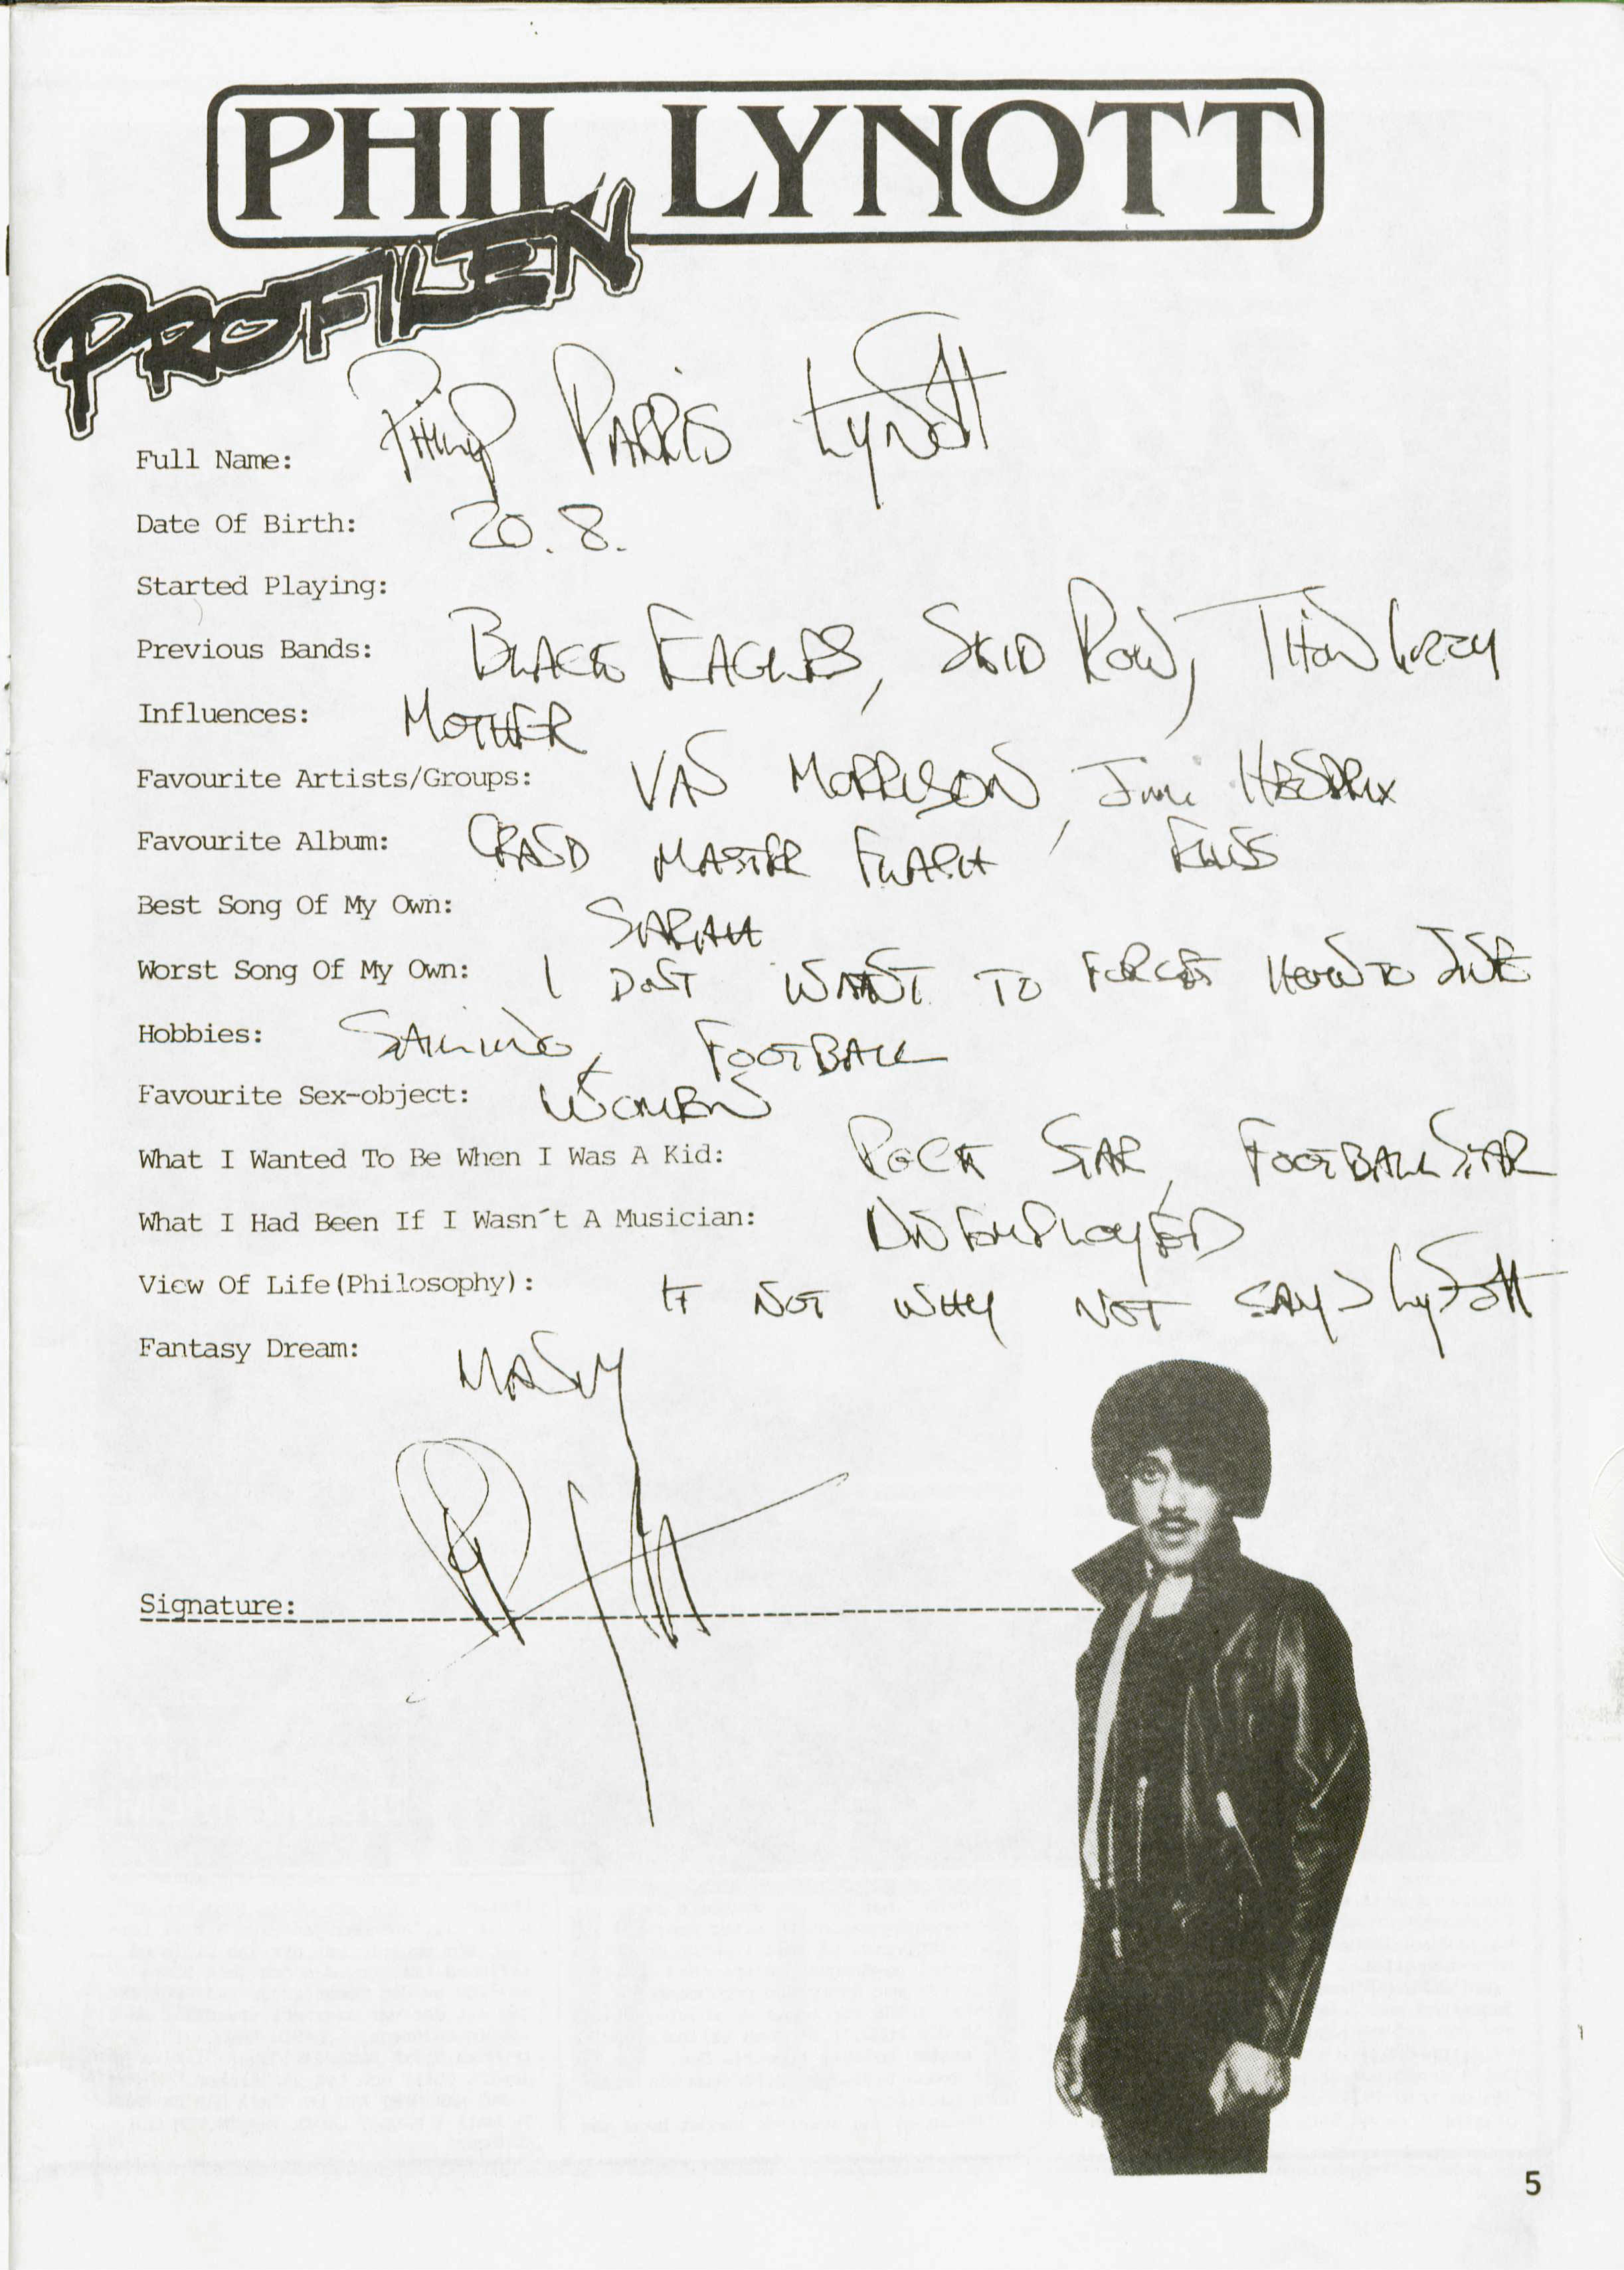 PHIL LYNOTT
PROFILEN
Full Name: Philip Parris Lynott
Date Of Birth: 20.8.
Started Playing:
Previous Bands: BLACK EAGLES, SKID ROW, THIN LIZZY
Influences: MOTHER
Favourite Artists/Groups: VAN MORRISON, Jimi HENDRIX
Favourite Album: GRAND MASTER FLASH ELVIS
Best Song Of My Own: SARAH
Worst Song Of My Own: I DONT WANT TO FORGET HOW TO JIVE
Hobbies: SAILING, FOOTBALL
Favourite Sex-object: WOMEN
What I Wanted To Be When I Was A Kid: ROCK STAR, FOOTBALL STAR
What I Had Been If I Wasn´t A Musician: UNEMPLOYED
View Of Life(Philosophy): IF NOT WHY NOT SAYS Lynott
Fantasy Dream: MANY
Signature:
5